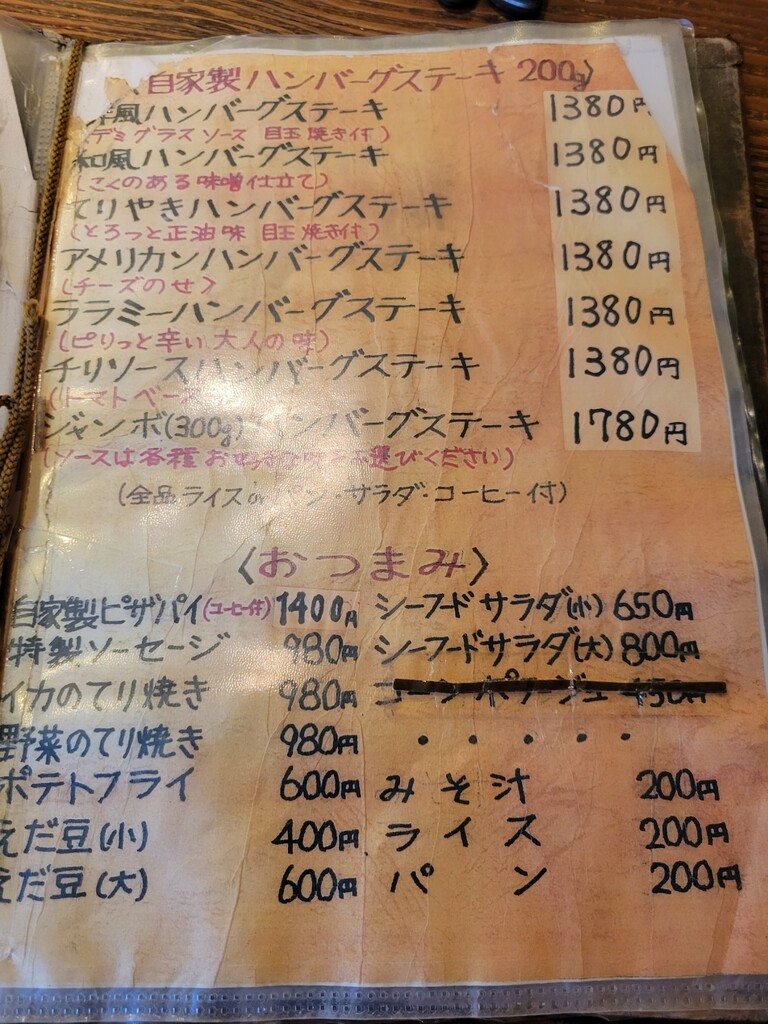 自家製ハンバーグステーキ 200g〉
洋風ハンバーグステーキ 1380円
(デミグラスソース 目玉焼き付)
和風ハンバーグステーキ 1380円
(こくのある味噌仕立て)
てりやきハンバーグステーキ 1380円
(とろっと正油味 目玉焼き付)
アメリカンハンバーグステーキ 1380円
(チーズのせ)
ララミーハンバーグステーキ 1380円
(ピリっと辛い大人の味)
チリソースハンバーグステーキ 1380円
(トマトベー
ジャンボ(300g)ハンバーグステーキ 1780円
(ソースは各種お好きな味をお選びください)
(全品ライスorパン・サラダ・コーヒー付)
〈おつまみ〉
自家製ピザパイ(コーヒー付) 1400円 シーフードサラダ(小) 650円
特製ソーセージ 980円 シーフードサラダ(大) 800円
イカのてり焼き 980円 コーンポタージュ 450円
野菜のてり焼き 980円 ・・・・・
ポテトフライ 600円 みそ汁 200円
えだ豆(小) 400円 ライス 200円
えだ豆(大) 600円 パン 200円